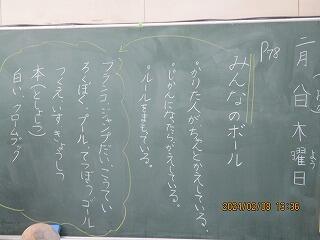 二月 日 木曜日
よう
P78
みんなのボール
・かりた人がちゃんとかえしている。
・じかんになったらかえしている。
・ルールをまもっている。
ブランコ、ジャングル、だい、こうてい
ろくぼく、プール、てつぼう、ゴール
つくえ、いす、きょうしつ
本(としょしつ)
白い、クロームブック
2021/02/08 13:36